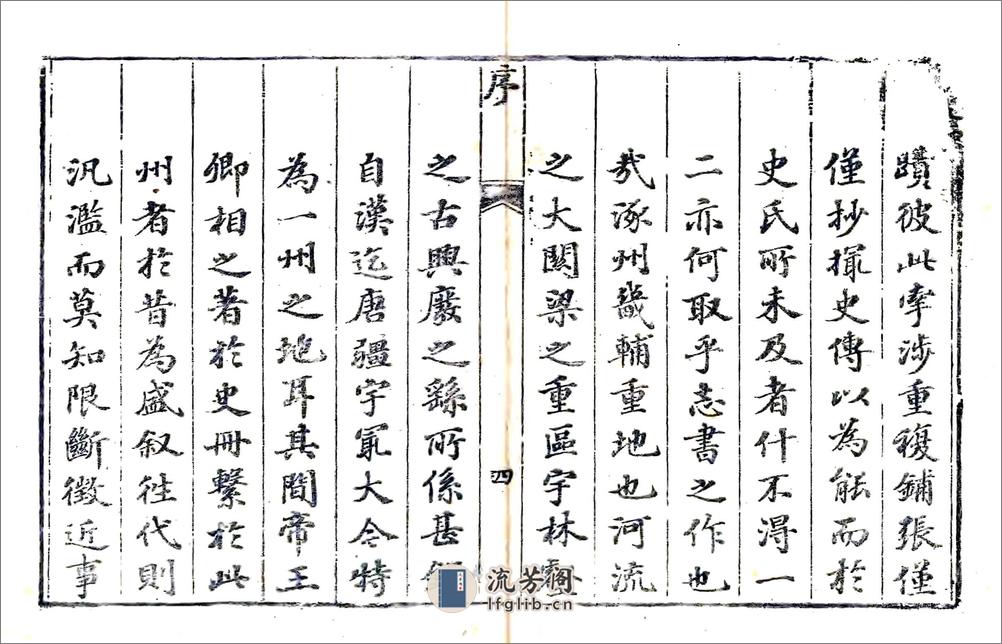 蹟彼此牽涉重複鋪張僅
僅抄撮史傳以為能而於
史氏所未及者什不得一
二亦何取乎志書之作也
我涿州畿輔重地也河流
之大關梁之重區宇林
序
四
之古興廢之繇所係甚
自漢迄唐疆宇冣大今特
為一州之地耳其間帝王
卿相之著於史冊繫於此
州者於昔為盛叙徃代則
汎濫而莫知限斷徵近事
流芳阁
lfglib.cn